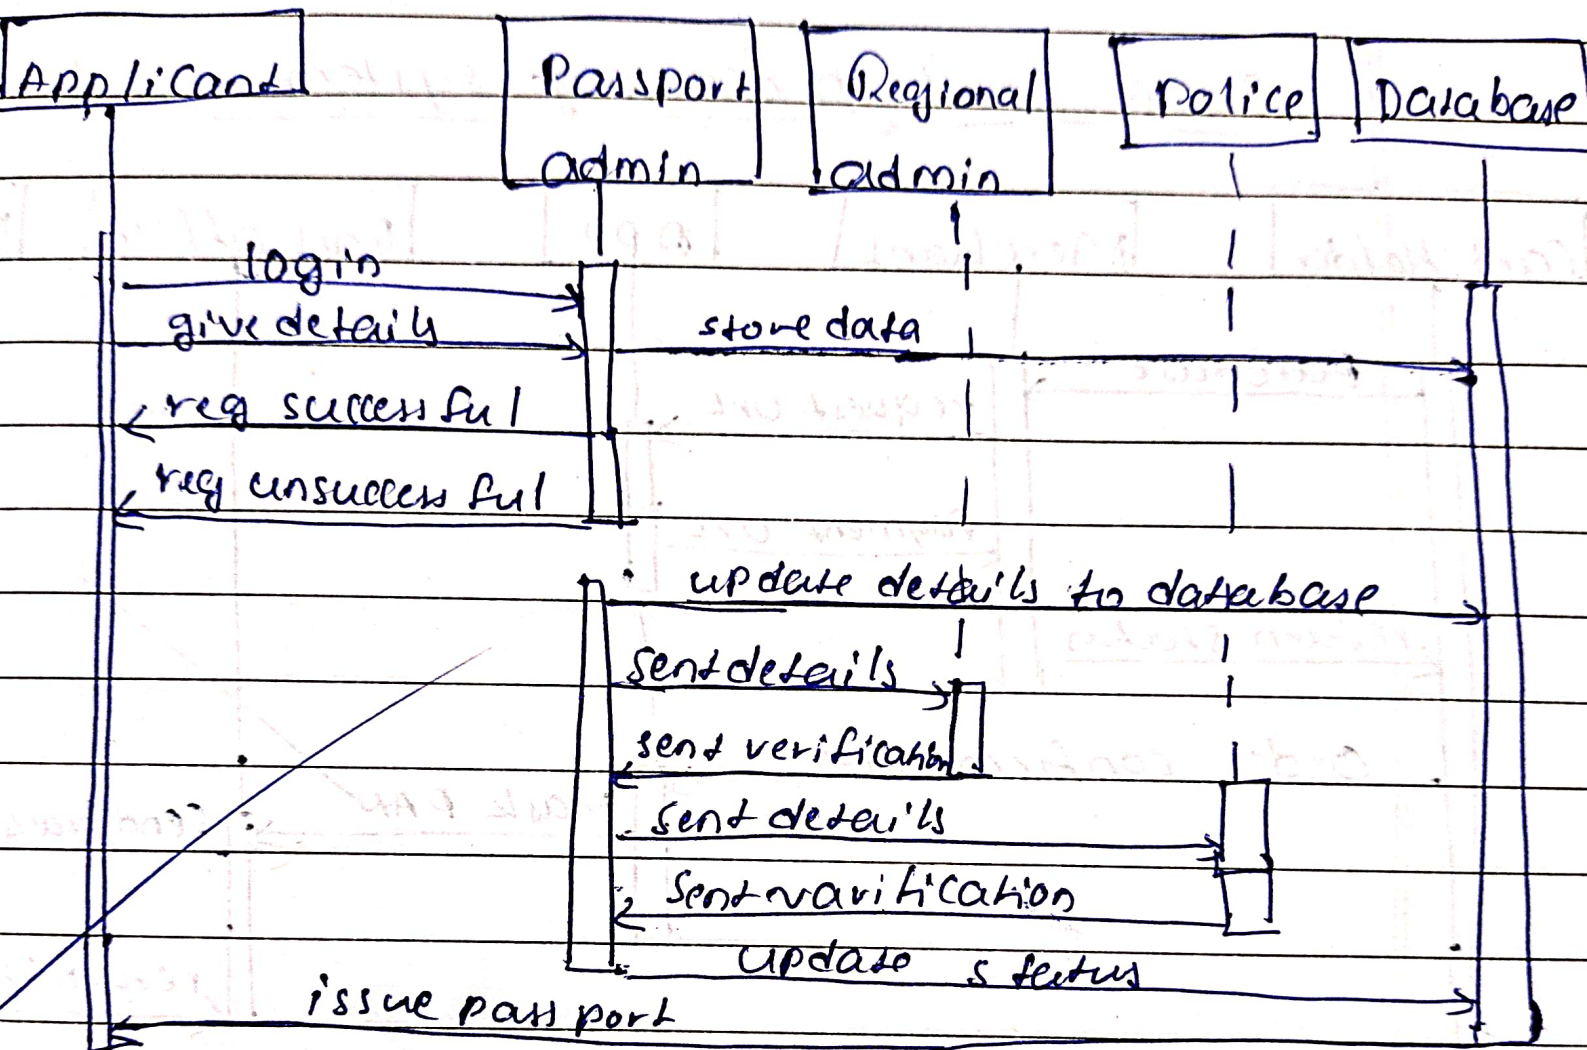 Applicant
Passport
admin
Regional
admin
Police
Database
login
give details
store data
reg successful
reg unsuccessful
update details to database
sent details
sent verification
sent details
sent varification
update status
issue passport